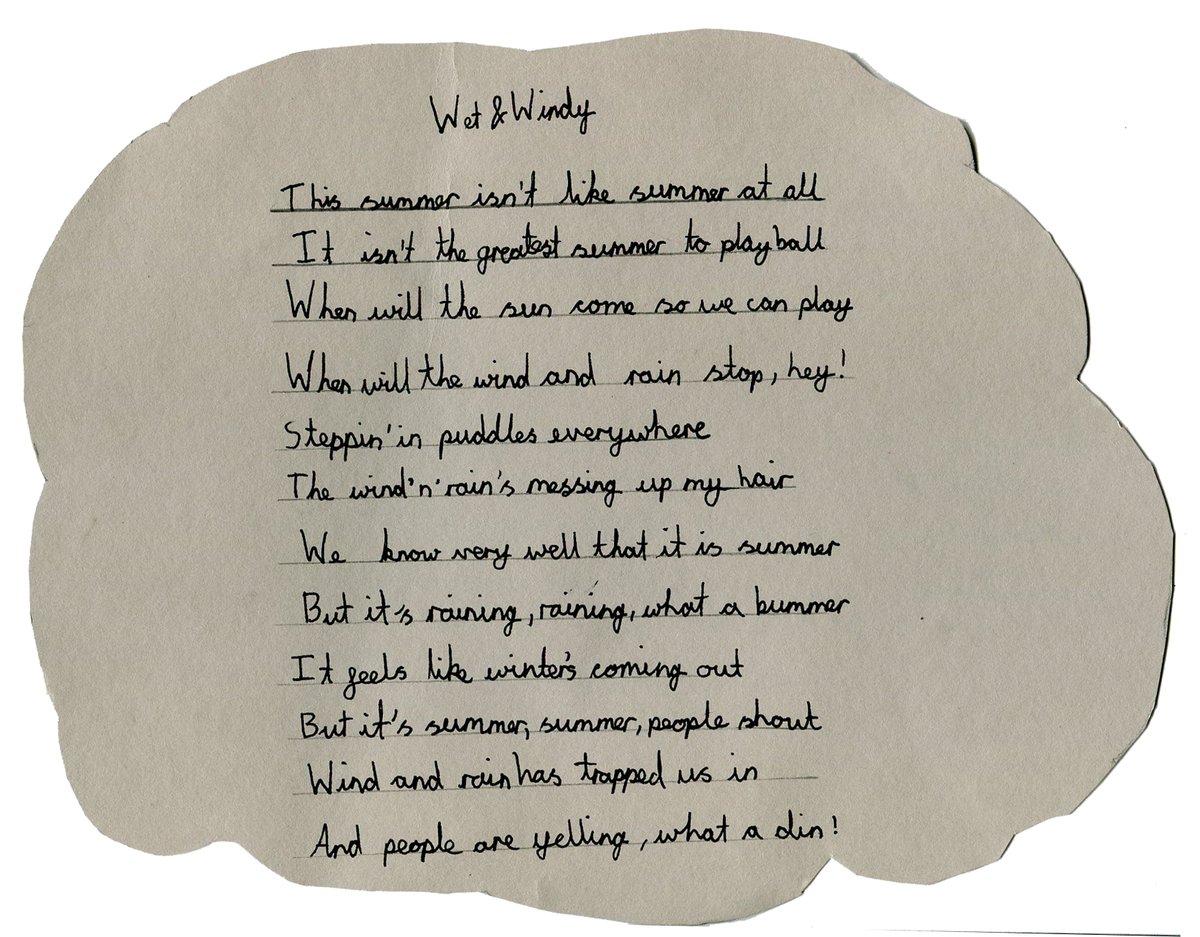 Wet & Windy
This summer isn't like summer at all
It isn't the greatest summer to play ball
When will the sun come so we can play
When will the wind and rain stop, hey!
Steppin' in puddles everywhere
The wind'n'rain's messing up my hair
We know very well that it is summer
But it's raining, raining, what a bummer
It feels like winter's coming out
But it's summer, summer, people shout
Wind and rain has trapped us in
And people are yelling, what a din!